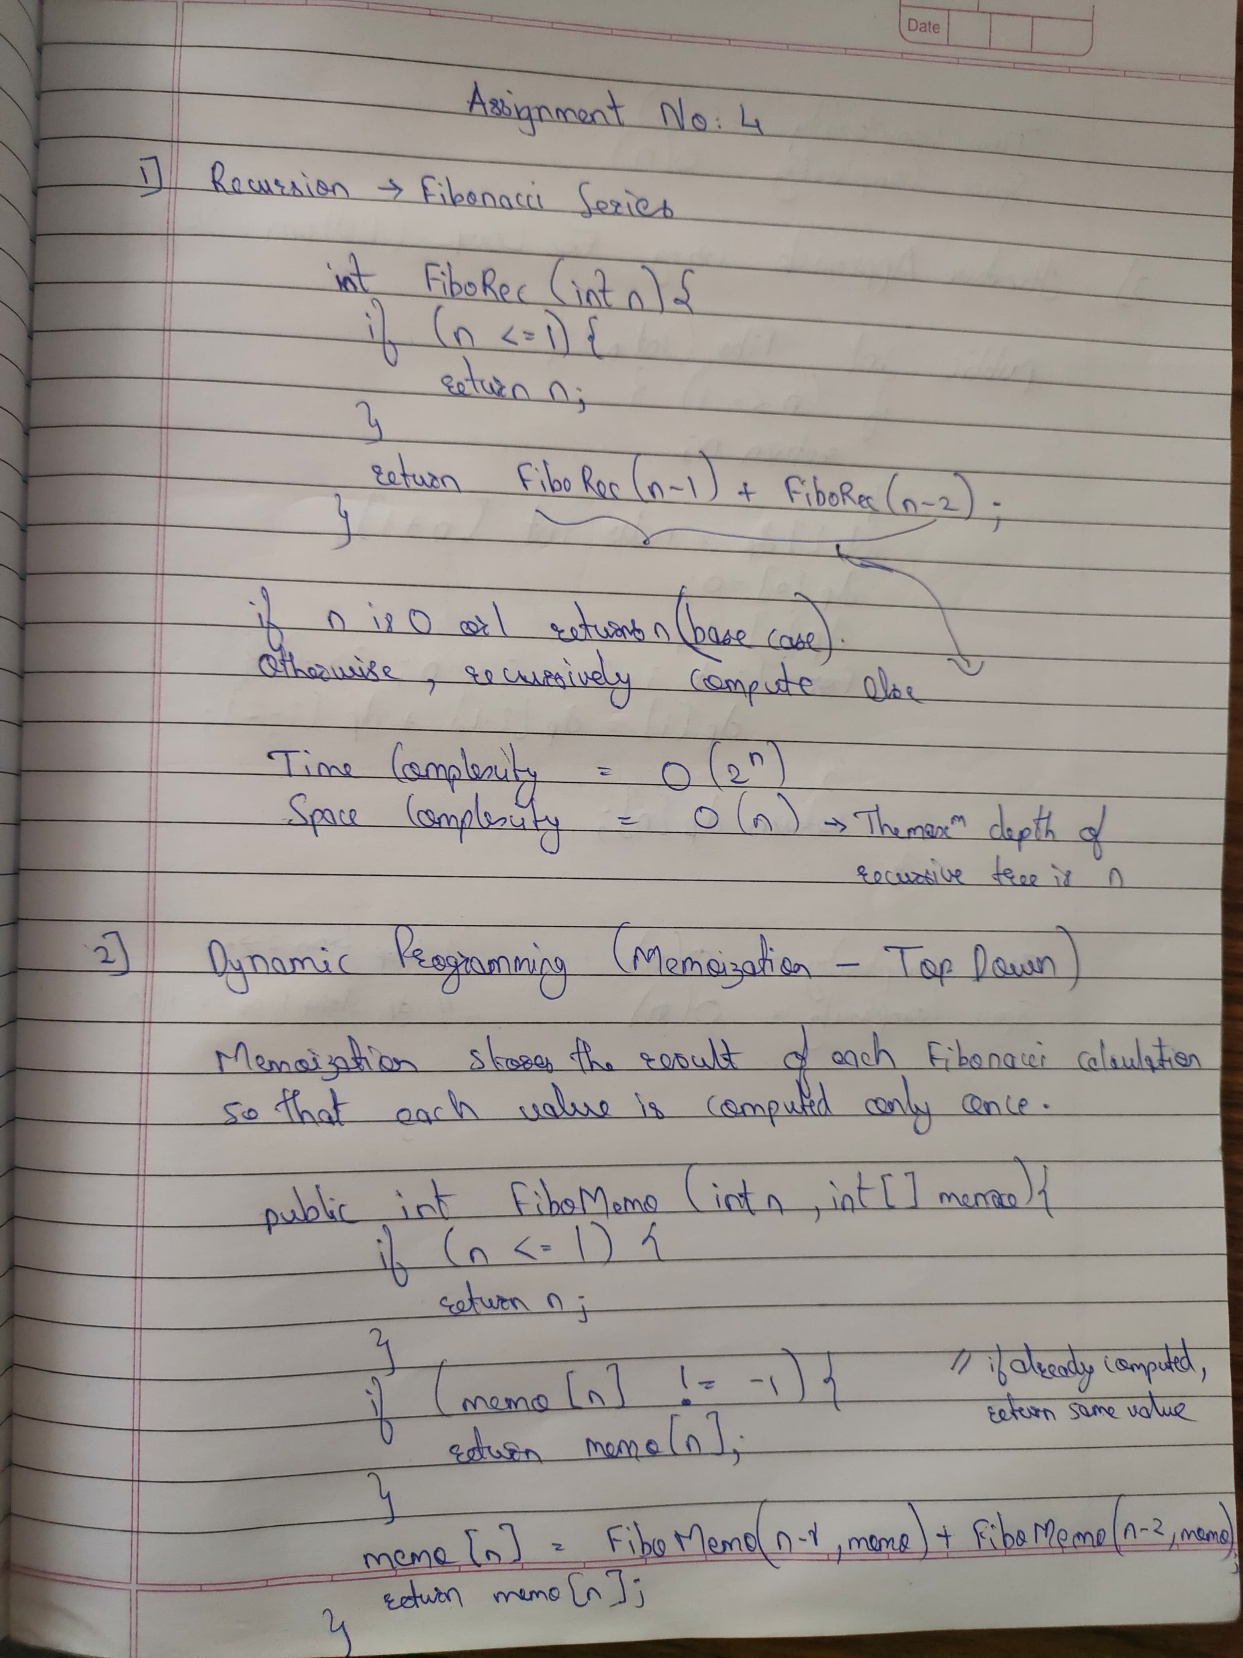 Date
Assignment No: 4
1] Recursion → Fibonacci Series
int FiboRec (int n) {
if (n <= 1) {
return n;
}
return FiboRec (n-1) + FiboRec (n-2);
}
if n is 0 or 1 returns n (base case).
Otherwise, recursively compute else
Time Complexity = O(2ⁿ)
Space Complexity = O(n) → The maxᵐ depth of
recursive tree is n
2] Dynamic Programming (Memoization - Top Down)
Memoization stores the result of each Fibonacci calculation
so that each value is computed only once.
public int FiboMemo (int n, int[] memo) {
if (n <= 1) {
return n;
}
if (memo [n] != -1) { // if already computed,
return same value
return memo[n];
}
memo [n] = FiboMemo(n-1, memo) + FiboMemo(n-2, memo);
return memo[n];
}